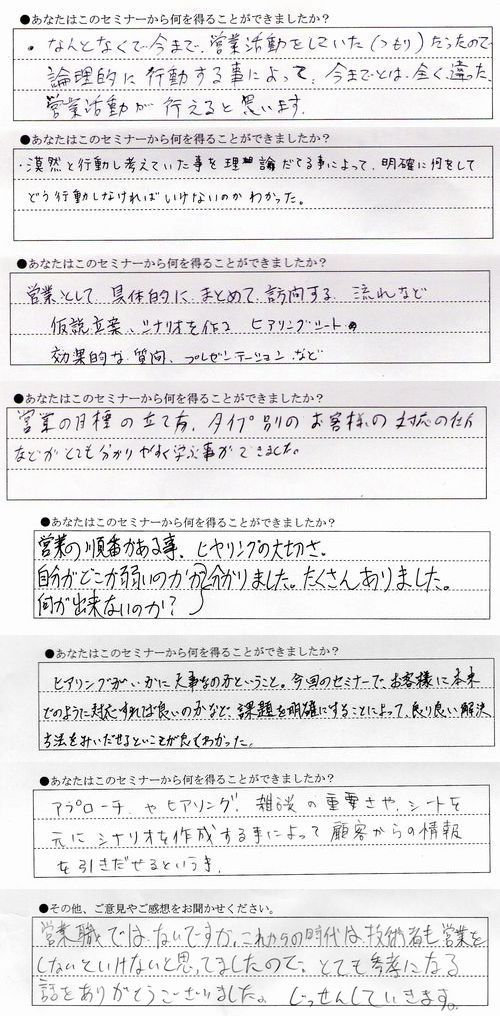 ●あなたはこのセミナーから何を得ることができましたか?
・なんとなくで今まで、営業活動をしていた(つもり)だったので
論理的に行動する事によって、今までとは、全く違った、
営業活動が行えると思います。
●あなたはこのセミナーから何を得ることができましたか?
・漠然と行動し考えていた事を理論だてる事によって、明確に何をして
どう行動しなければいけないのかわかった。
●あなたはこのセミナーから何を得ることができましたか?
営業として具体的にまとめて訪問する流れなど
仮説立案、シナリオを作る ヒアリングシートの
効果的な質問、プレゼンテーションなど
●あなたはこのセミナーから何を得ることができましたか?
営業の目標の立て方、タイプ別のお客様の対応の仕方
などがとても分かりやすく学ぶ事ができました。
●あなたはこのセミナーから何を得ることができましたか?
営業の順番がある事、ヒヤリングの大切さ、
自分がどこが弱いのかが分かりました。たくさんありました。
何が出来ないのか?
●あなたはこのセミナーから何を得ることができましたか?
ヒアリングがいかに大事なのかということ。今回のセミナーで、お客様に本来
どのように対応すれば良いのかなど、課題を明確にすることによって、より良い解決
方法をみいだせるということが良くわかった。
●あなたはこのセミナーから何を得ることができましたか?
アプローチやヒアリング、雑談の重要さや、シートを
元にシナリオを作成する事によって顧客からの情報
を引きだせるという事。
●その他、ご意見やご感想をお聞かせください。
営業職ではないですが、これからの時代は技術者も営業を
しないといけないと思ってましたので、とても参考になる
話をありがとうございました。じっせんしていきます。